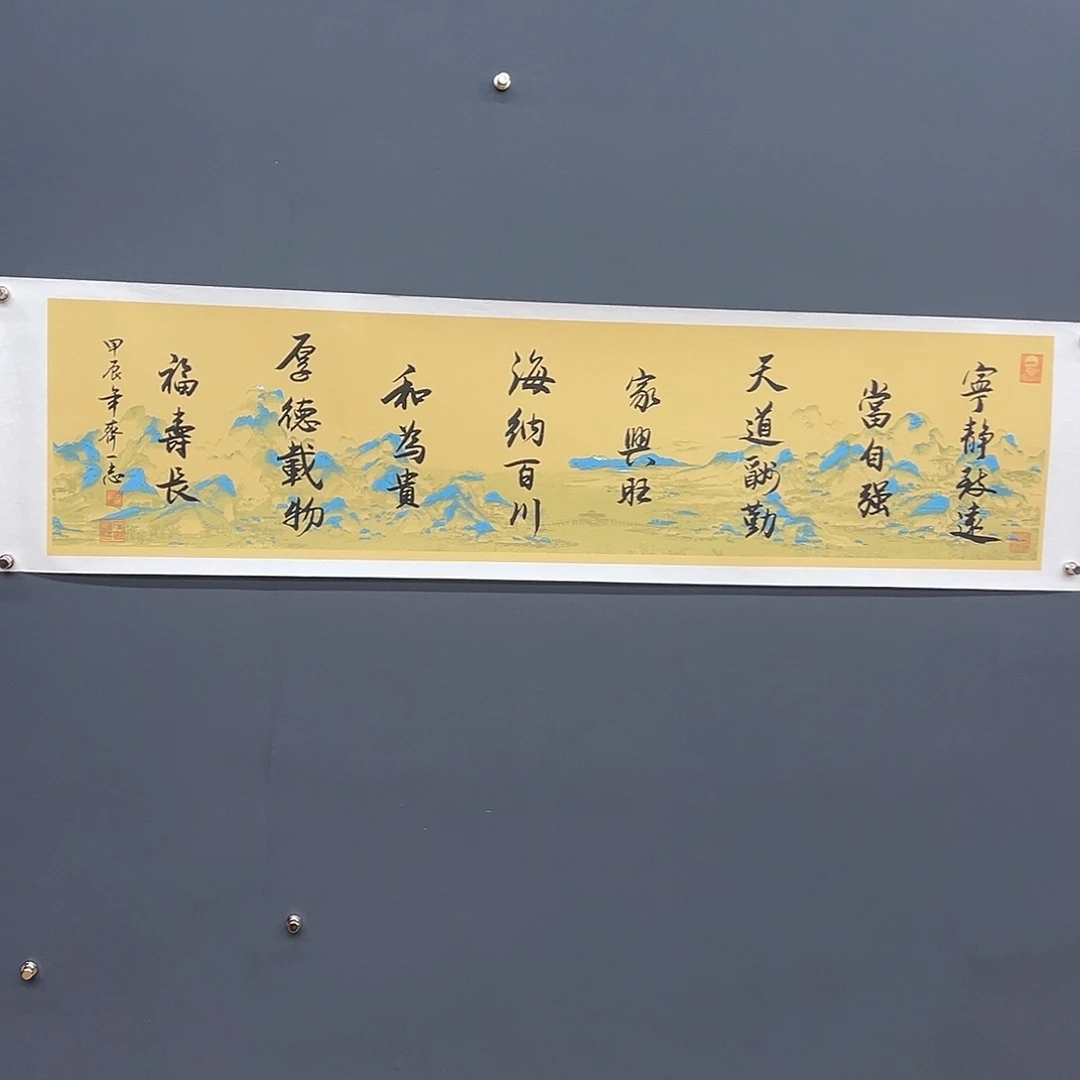 寧靜致遠
當自强
天道酬勤
家興旺
海納百川
和為貴
厚德載物
福壽長
甲辰年齊一志